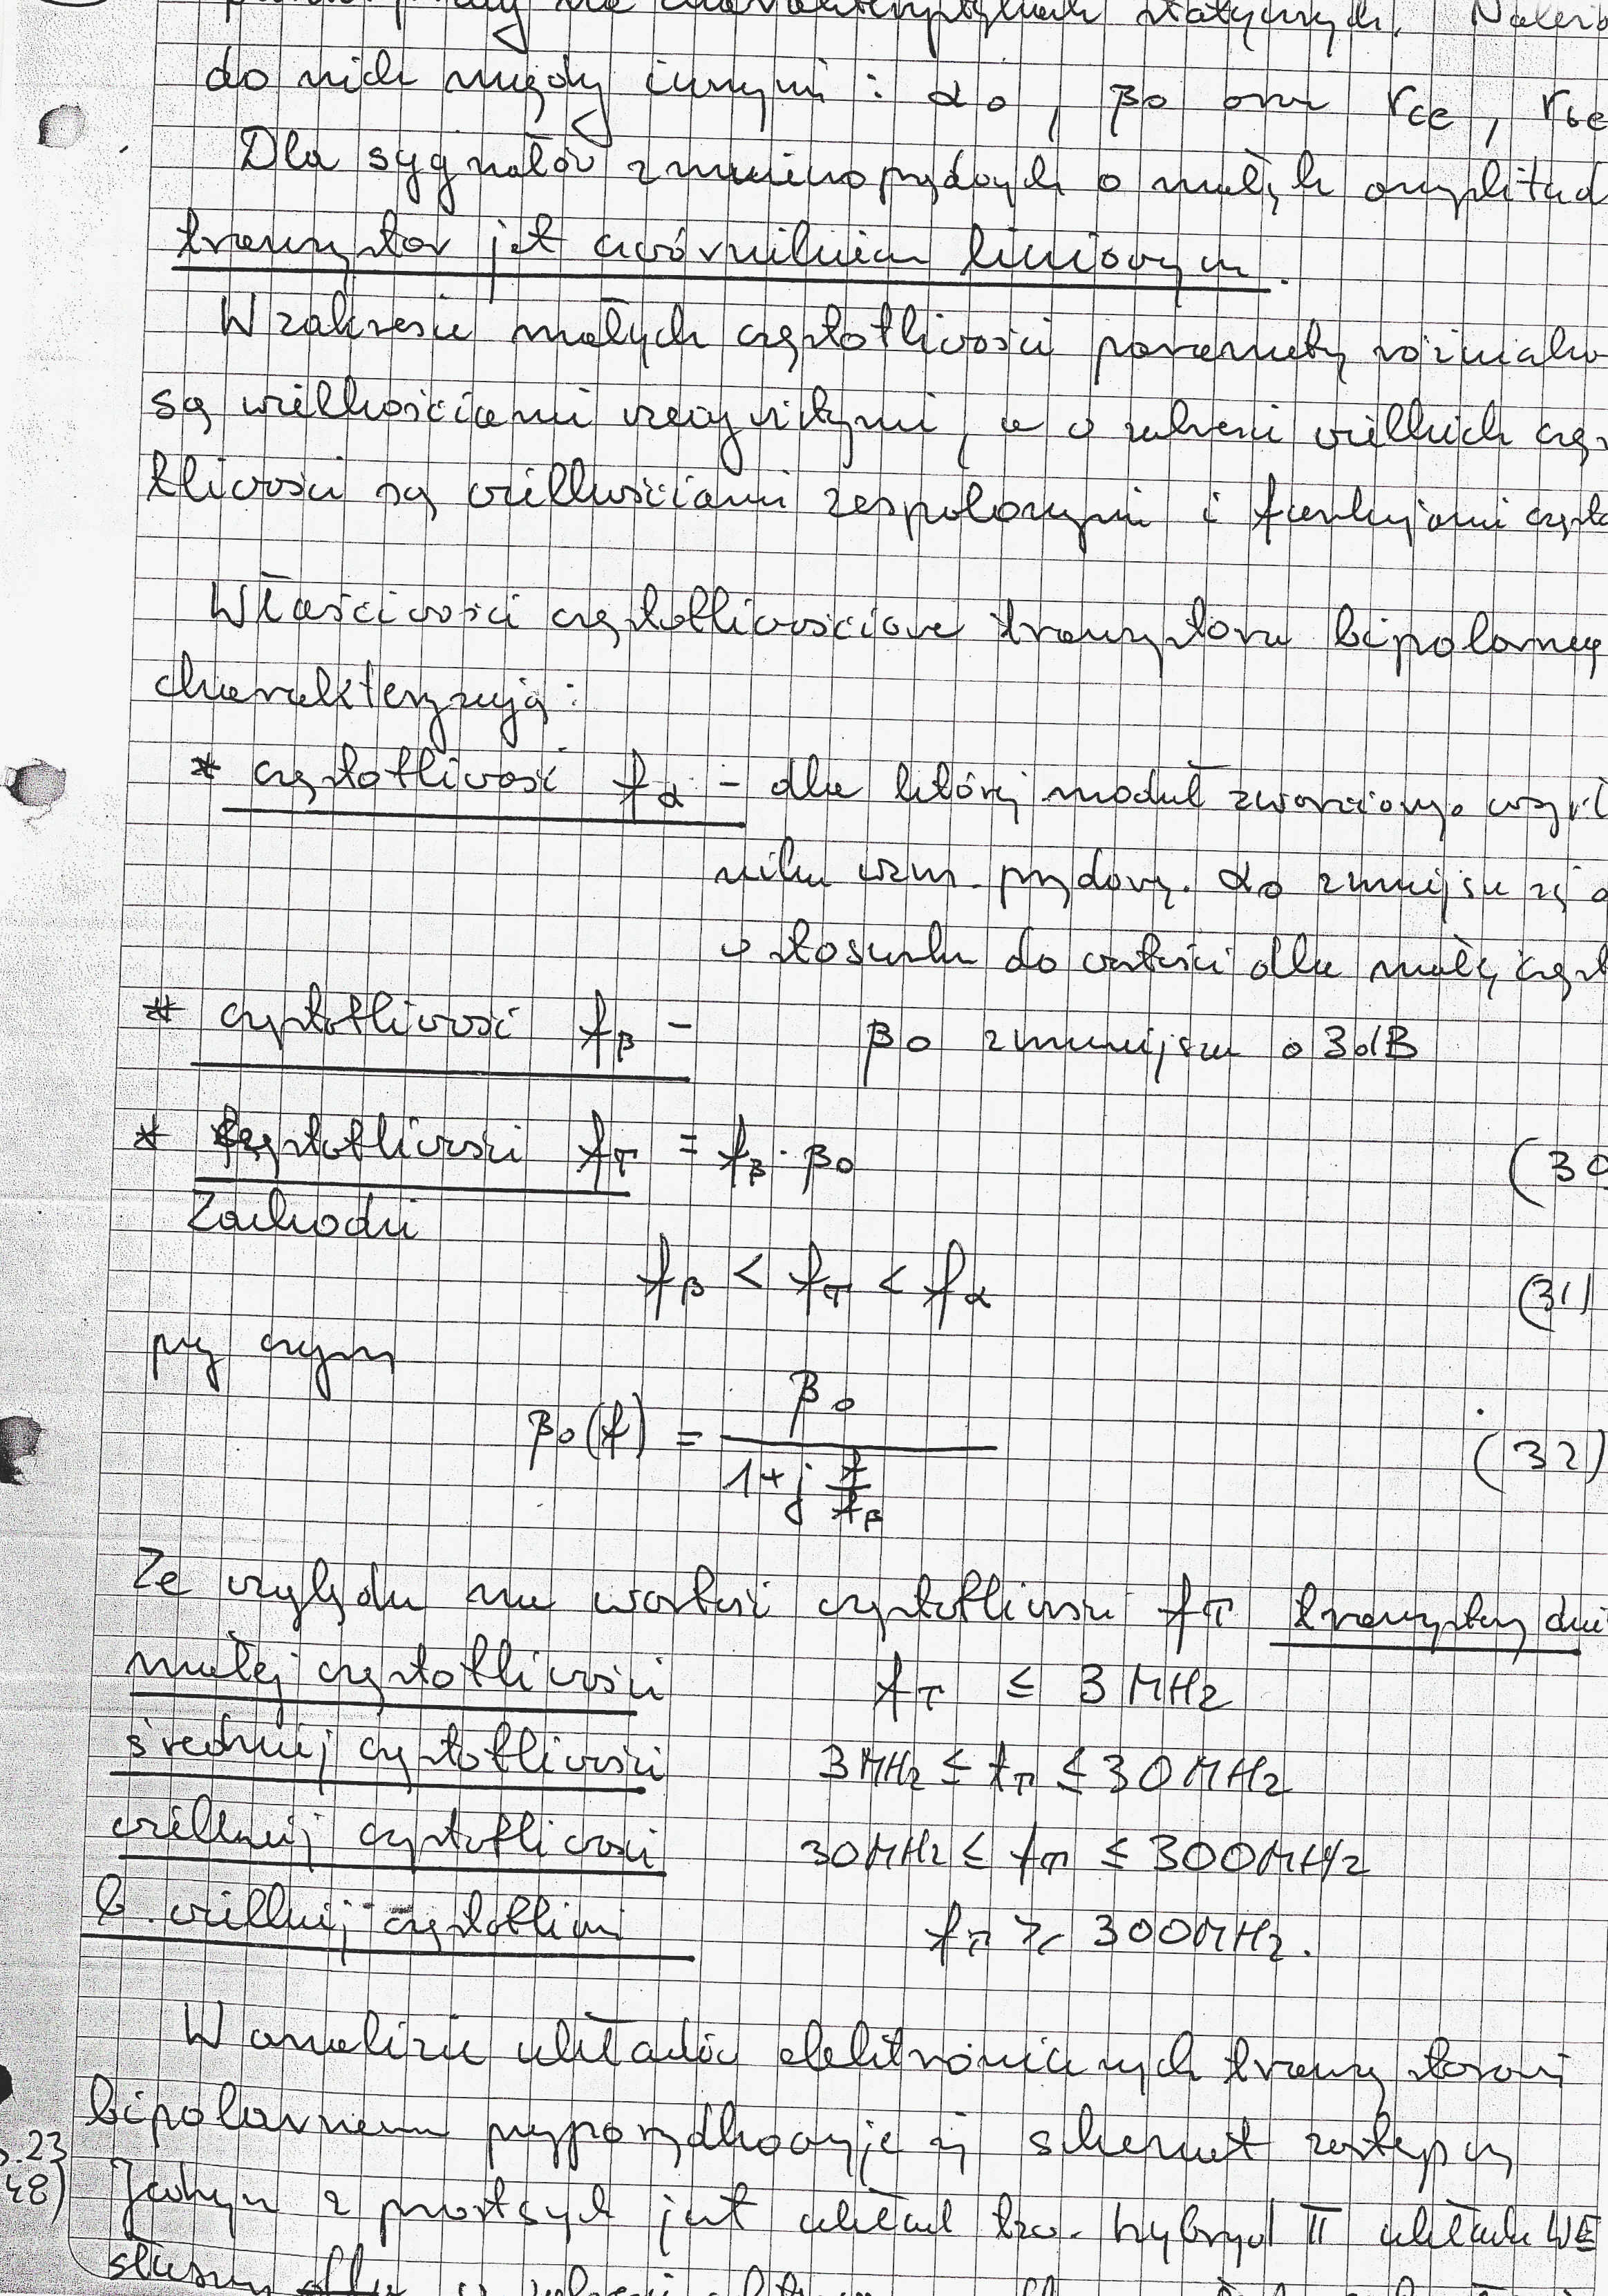 charakterystykach statycznych. Należ
do nich między innymi : α0, β0 oraz rce, rbe
Dla sygnałów zmiennoprądowych o małych amplitud
tranzystor jest czwórnikiem liniowym.
W zakresie małych częstotliwości parametry różniczko
są wielkościami rzeczywistymi, a w zakresie wielkich częs
tliwości są wielkościami zespolonymi i funkcjami często
Właściwości częstotliwościowe tranzystora bipolarneg
charakteryzują:
* częstotliwość fα - dla której moduł zwarciowego wspól
nika wzm. prądowego. α0 zmniejsza się o
w stosunku do wartości dla małej częst
* częstotliwość fβ - β0 zmniejsza o 3dB
* częstotliwości fT = fβ · β0 (30
Zachodzi
fβ < fT < fα (31)
przy czym
β0(f) = β0 / (1+j f/fβ) (32)
Ze względu na wartość częstotliwości fT tranzystory dzie
małej częstotliwości fT ≤ 3 MHz
średniej częstotliwości 3MHz ≤ fT ≤ 30MHz
wielkiej częstotliwości 30MHz ≤ fT ≤ 300MHz
b. wielkiej częstotliwi fT ≥ 300MHz.
W analizie układów elektronicznych tranzystorowi
bipolarnemu przyporządkowuje się schemat zastępczy
.23
48) Jednym z prostszych jest układ tzw. hybryd π układu WE